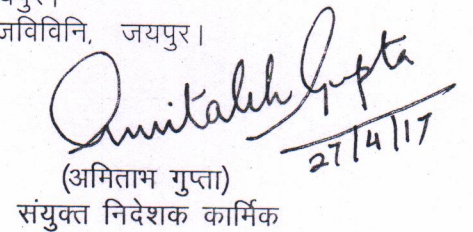 जविविनि, जयपुर।
Amitabh Gupta
27/4/17
(अमिताभ गुप्ता)
संयुक्त निदेशक कार्मिक